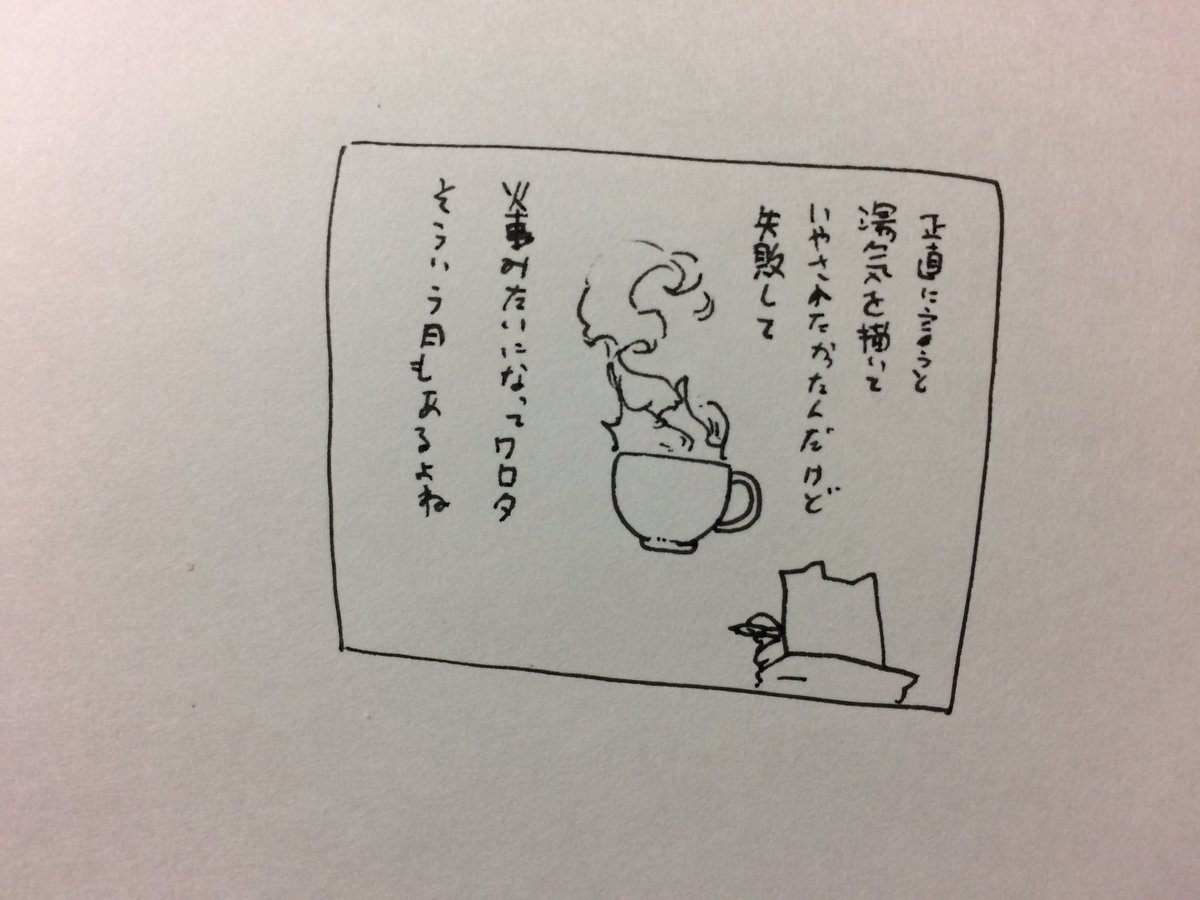 正直に言うと
湯気を描いて
いやされたかったんだけど
失敗して
火事みたいになってワロタ
そういう日もあるよね